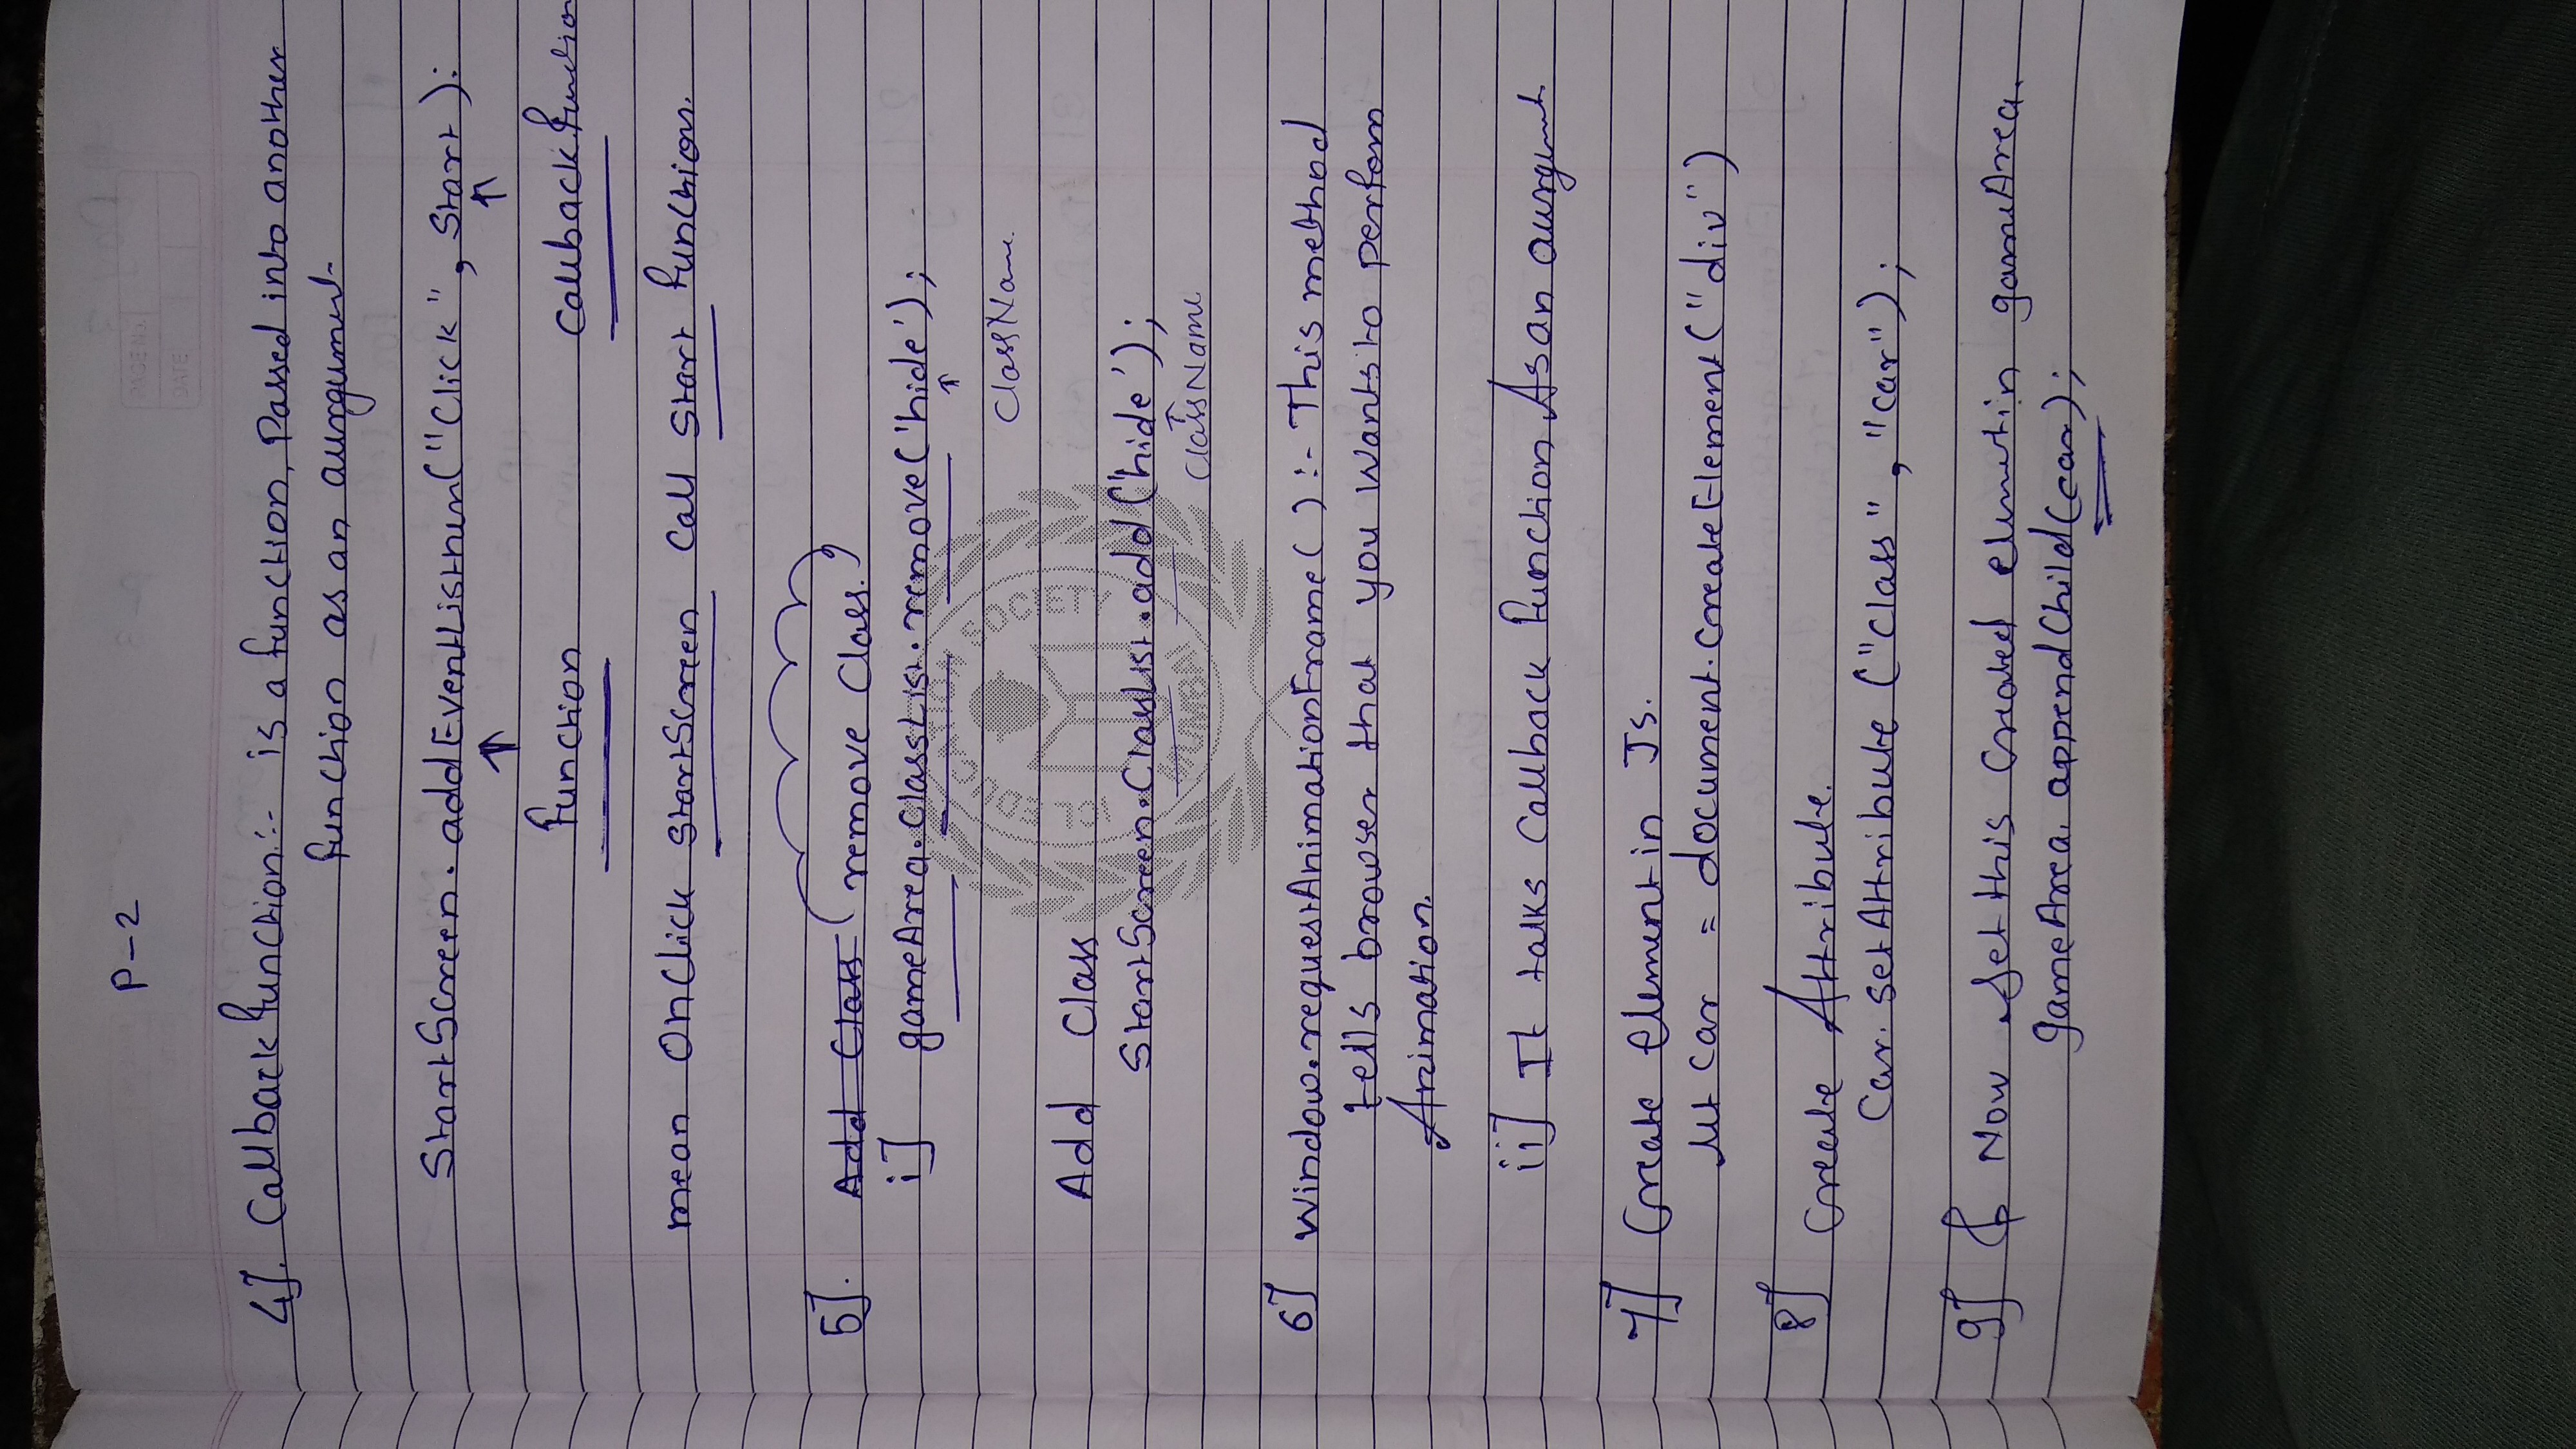 P-2
4]. Callback function:- is a function, Passed into another
function as an aurgument.
StartScreen.addEventListnen("click", start):
↑ ↑
function Callback function
mean onclick startscreen call start function.
5]. Add Class (remove class.)
i] gameArea.classList.remove('hide');
↑
ClassName
Add Class
StartScreen.Classlist.add('hide');
ClassName
6] Window.requestAnimationFrame():- This method
tells browser that you wants to perfom
Animation.
ii] It talks Callback function As an aurgument
7] Create Element in Js.
let car = document.createElement("div")
8] Create Attribute.
Car.setAttribute("class", "car");
9] Now set this created element in gameArea.
gameArea.appendChild(car);
PAGE NO.
DATE
SOCIETY